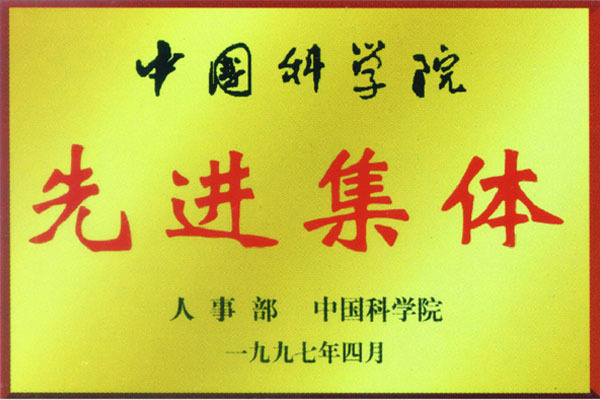 中国科学院
先进集体
人事部 中国科学院
一九九七年四月